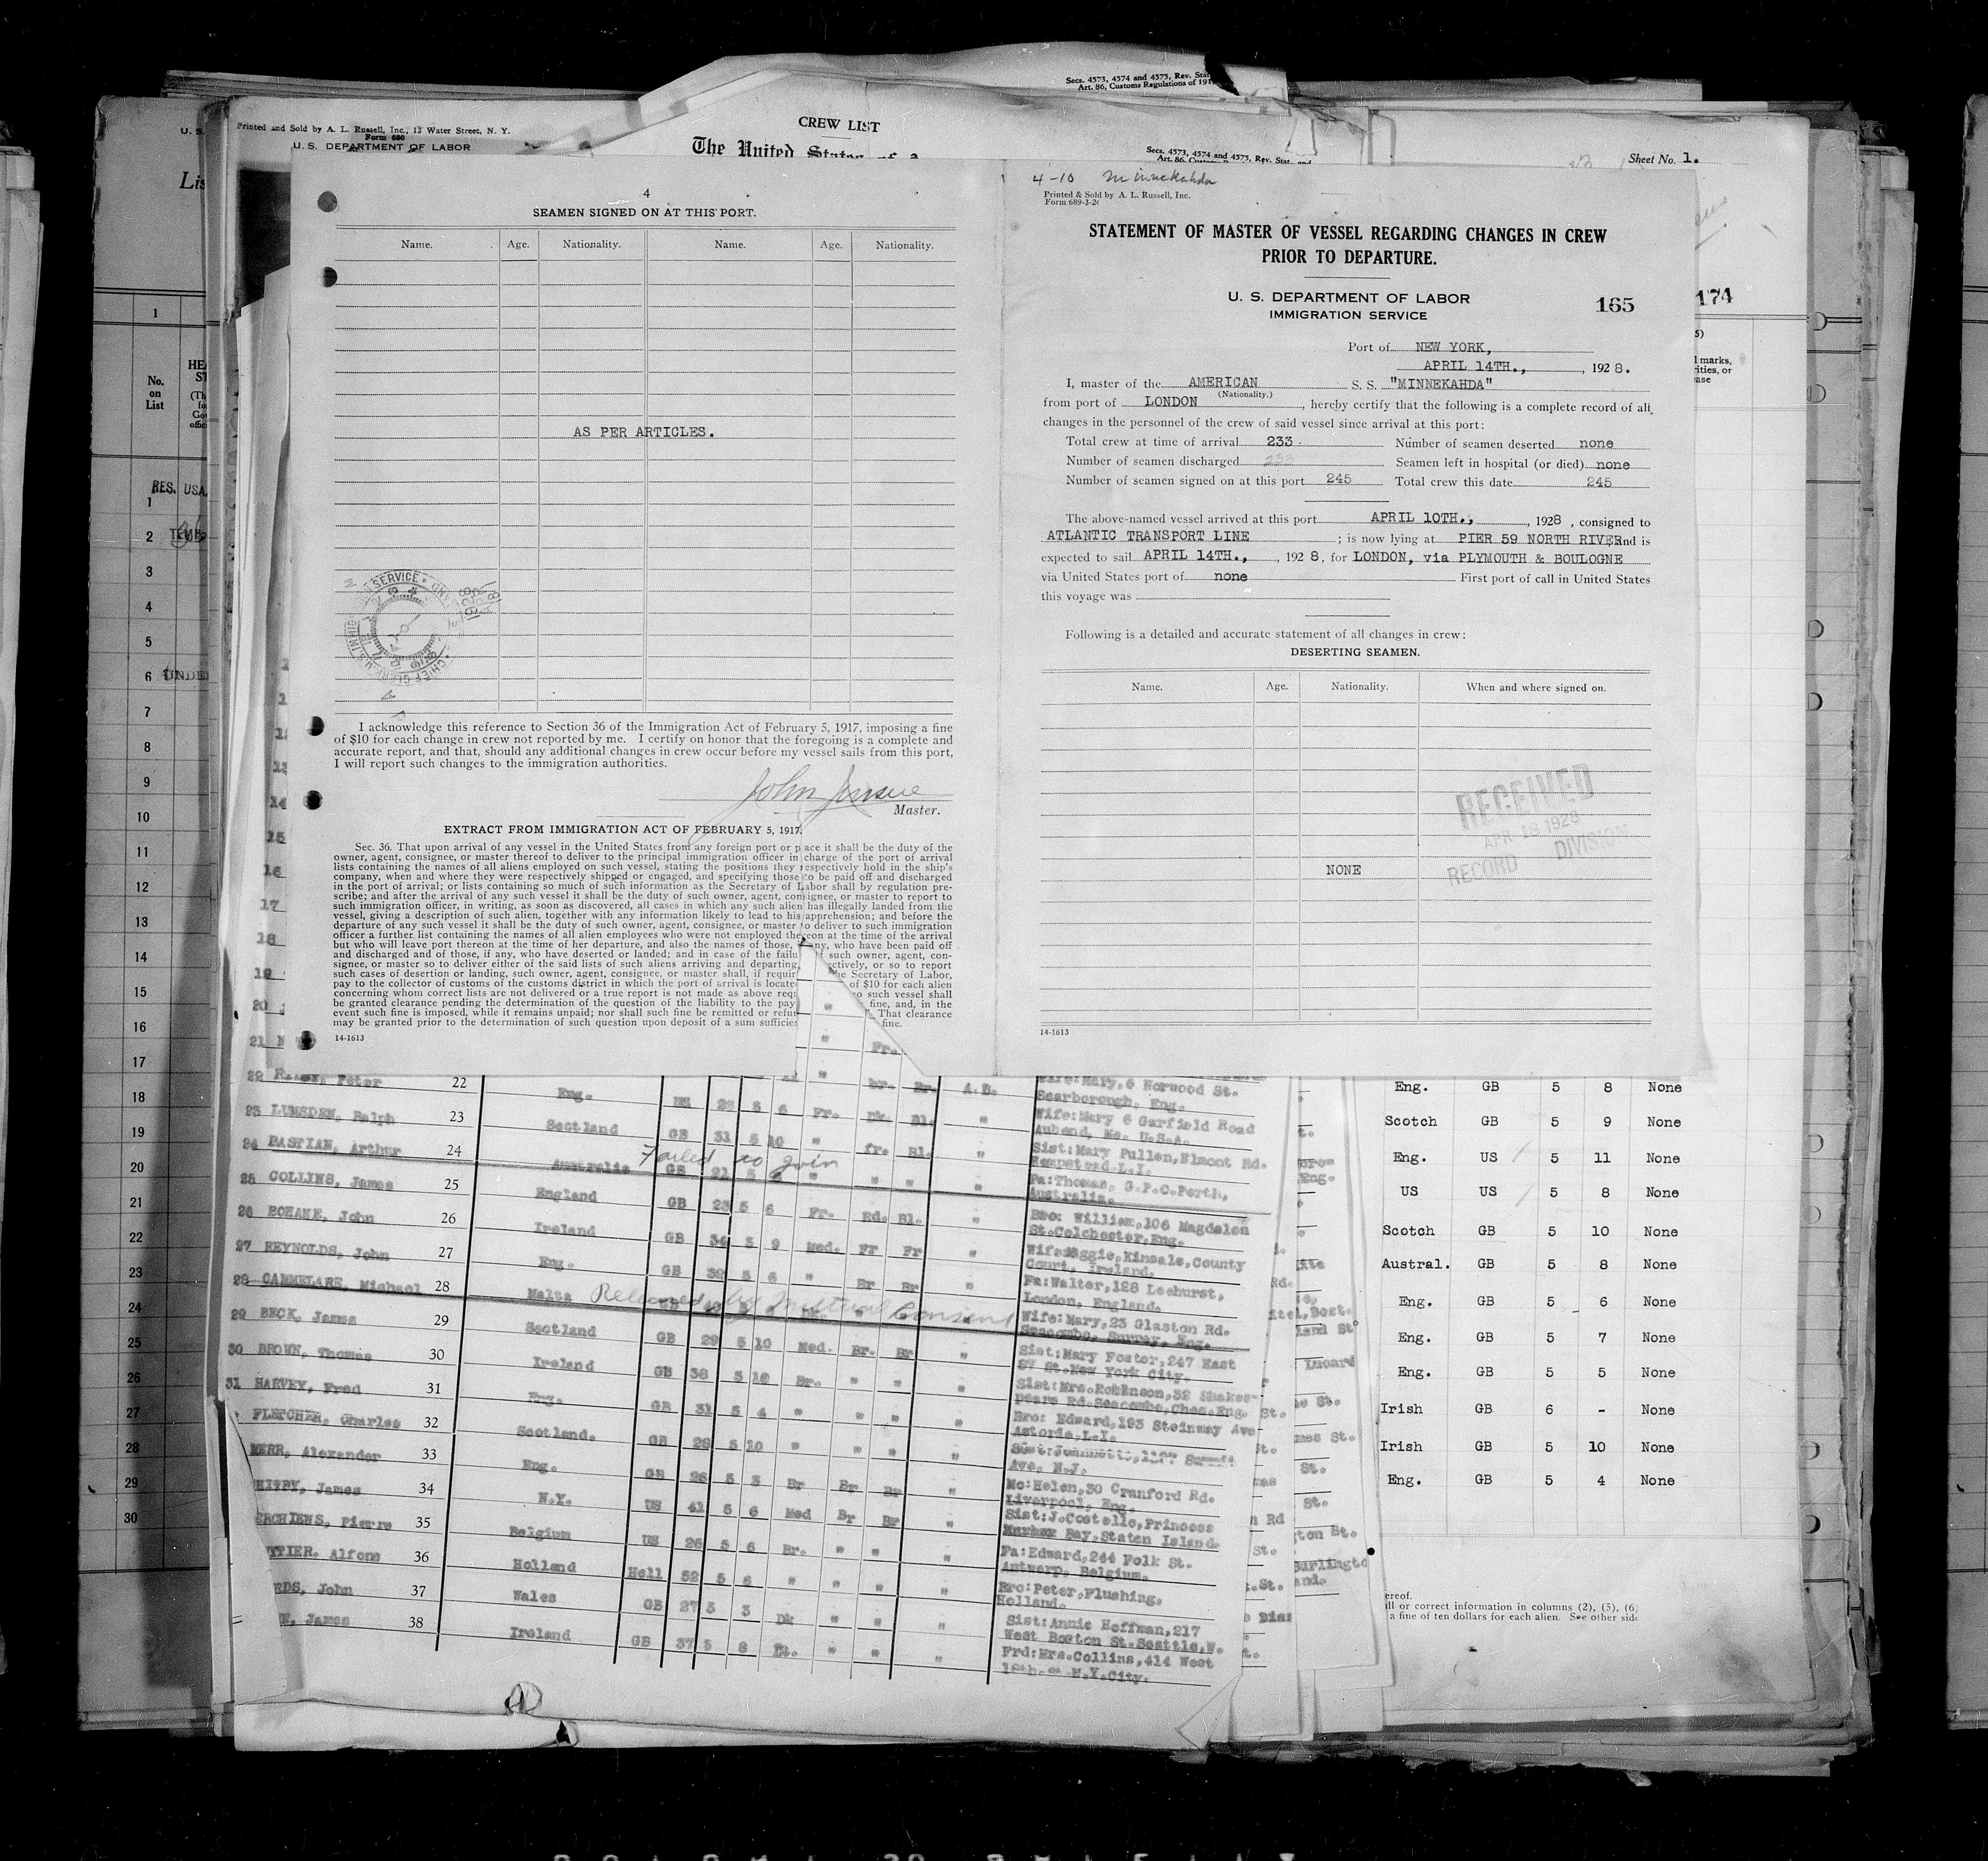 Secs. 4573, 4574 and 4575, Rev. Stat
Art. 86, Customs Regulations of 191
Printed and Sold by A. L. Russell, Inc., 13 Water Street, N. Y.
Form 680
U. S. DEPARTMENT OF LABOR
CREW LIST
The United States of a
Secs. 4573, 4574 and 4575, Rev. Stat., and
Sheet No. 1.
U. S.
Lis
1
No.
on
List
RES. USA.
1
2
3
4
5
6 UNDE
7
8
9
10
11
12
13
14
15
16
17
18
19
20
21
22
23
24
25
26
27
28
29
30
4
SEAMEN SIGNED ON AT THIS PORT.
Name. Age. Nationality. Name. Age. Nationality.
AS PER ARTICLES.
I acknowledge this reference to Section 36 of the Immigration Act of February 5, 1917, imposing a fine
of $10 for each change in crew not reported by me. I certify on honor that the foregoing is a complete and
accurate report, and that, should any additional changes in crew occur before my vessel sails from this port,
I will report such changes to the immigration authorities.
John Jensen
Master.
EXTRACT FROM IMMIGRATION ACT OF FEBRUARY 5, 1917.
Sec. 36. That upon arrival of any vessel in the United States from any foreign port or place it shall be the duty of the
owner, agent, consignee, or master thereof to deliver to the principal immigration officer in charge of the port of arrival
lists containing the names of all aliens employed on such vessel, stating the positions they respectively hold in the ship's
company, when and where they were respectively shipped or engaged, and specifying those to be paid off and discharged
in the port of arrival; or lists containing so much of such information as the Secretary of Labor shall by regulation pre-
scribe; and after the arrival of any such vessel it shall be the duty of such owner, agent, consignee, or master to report to
such immigration officer, in writing, as soon as discovered, all cases in which any such alien has illegally landed from the
vessel, giving a description of such alien, together with any information likely to lead to his apprehension; and before the
departure of any such vessel it shall be the duty of such owner, agent, consignee, or master to deliver to such immigration
officer a further list containing the names of all alien employees who were not employed thereon at the time of the arrival
but who will leave port thereon at the time of her departure, and also the names of those, if any, who have been paid off
and discharged and of those, if any, who have deserted or landed; and in case of the failu such owner, agent, con-
signee, or master so to deliver either of the said lists of such aliens arriving and departing, ectively, or so to report
such cases of desertion or landing, such owner, agent, consignee, or master shall, if requir he Secretary of Labor,
pay to the collector of customs of the customs district in which the port of arrival is locate of $10 for each alien
concerning whom correct lists are not delivered or a true report is not made as above requ o such vessel shall
be granted clearance pending the determination of the question of the liability to the pay fine, and, in the
event such fine is imposed, while it remains unpaid; nor shall such fine be remitted or refun That clearance
may be granted prior to the determination of such question upon deposit of a sum sufficien fine.
14-1613
4-10 Minnekahda
Printed & Sold by A. L. Russell, Inc.
Form 689-3-26
STATEMENT OF MASTER OF VESSEL REGARDING CHANGES IN CREW
PRIOR TO DEPARTURE.
U. S. DEPARTMENT OF LABOR
IMMIGRATION SERVICE
165
174
Port of NEW YORK,
APRIL 14TH., , 1928.
I, master of the AMERICAN S. S. "MINNEKAHDA"
(Nationality.)
from port of LONDON , hereby certify that the following is a complete record of all
changes in the personnel of the crew of said vessel since arrival at this port:
Total crew at time of arrival 233 Number of seamen deserted none
Number of seamen discharged 233 Seamen left in hospital (or died) none
Number of seamen signed on at this port 245 Total crew this date 245
The above-named vessel arrived at this port APRIL 10TH., , 1928 , consigned to
ATLANTIC TRANSPORT LINE ; is now lying at PIER 59 NORTH RIVER and is
expected to sail APRIL 14TH., , 1928, for LONDON, via PLYMOUTH & BOULOGNE
via United States port of none First port of call in United States
this voyage was
Following is a detailed and accurate statement of all changes in crew:
DESERTING SEAMEN.
Name. Age. Nationality. When and where signed on.
NONE
RECEIVED
APR 18 1928
RECORD DIVISION
14-1613
22 Peter 22 Eng. 22 5 6 Fr. A.B. Wife: Mary, 6 Norwood St.
Scarborough, Eng.
23 LUMSDEN, Ralph 23 Scotland GB 31 5 10 " fr. Bl. " Wife: Mary 6 Garfield Road
Auband, Me. U.S.A.
24 BASTIAN, Arthur 24 Australia GB 21 5 Sist: Mary Pullen, Elmont Rd.
Hempstead L.I.
Failed to join
25 COLLINS, James 25 England GB 23 5 6 Fr. Rd. Bl. " Pa: Thomas, G.P.O. Perth,
Australia.
26 ROHANE, John 26 Ireland GB 34 5 9 Med. Fr Fr " Bro: William, 106 Magdalen
St. Colchester, Eng.
27 REYNOLDS, John 27 Eng. GB 39 5 6 " Br Br " Wife: Maggie, Kinsale, County
Court, Ireland.
28 CAMMELARE, Michael 28 Malta Fa: Walter, 128 Leehurst,
London, England.
Released by mutual Consent
29 BECK, James 29 Scotland GB 29 5 10 Med. Br. Br " Wife: Mary, 23 Glaston Rd.
Seacombe, Surrey, Eng.
30 BROWN, Thomas 30 Ireland GB 38 5 10 Br. " " " Sist: Mary Foster, 247 East
St. New York City.
31 HARVEY, Fred 31 Eng. GB 31 5 4 " " " " Sist: Mrs. Robinson, 32 Shakes-
peare Rd. Seacombe, Ches. Eng.
FLETCHER, Charles 32 Scotland. GB 28 5 10 " " " " Bro: Edward, 193 Steinway Ave
Astoria, L.I.
KERR, Alexander 33 Eng. GB 26 5 3 Br Br Br "
Ave, N.J.
James 34 N.Y. US 41 5 6 Med Br Br " Mo: Helen, 30 Cranford Rd.
Liverpool, Eng.
Pierre 35 Belgium US 26 5 6 Br. " " " Sist: J. Costello, Princess
Bay, Staten Island.
Alfons 36 Holland Holl 52 5 6 " " " " Fa: Edward, 244 Folk St.
Antwerp, Belgium.
RDS, John 37 Wales GB 27 5 3 Dk " " " Bro: Peter, Flushing,
Holland.
James 38 Ireland GB 37 5 8 " " " Sist: Annie Hoffman, 217
West Boston St. Seattle, W.
Frd: Mrs. Collins, 414 West
N.Y. City.
Eng. GB 5 8 None
Scotch GB 5 9 None
Eng. US 5 11 None
US US 5 8 None
Scotch GB 5 10 None
Austral. GB 5 8 None
Eng. GB 5 6 None
Eng. GB 5 7 None
Eng. GB 5 5 None
Irish GB 6 - None
Irish GB 5 10 None
Eng. GB 5 4 None
ereof.
ill or correct information in columns (2), (5), (6;
a fine of ten dollars for each alien. See other side